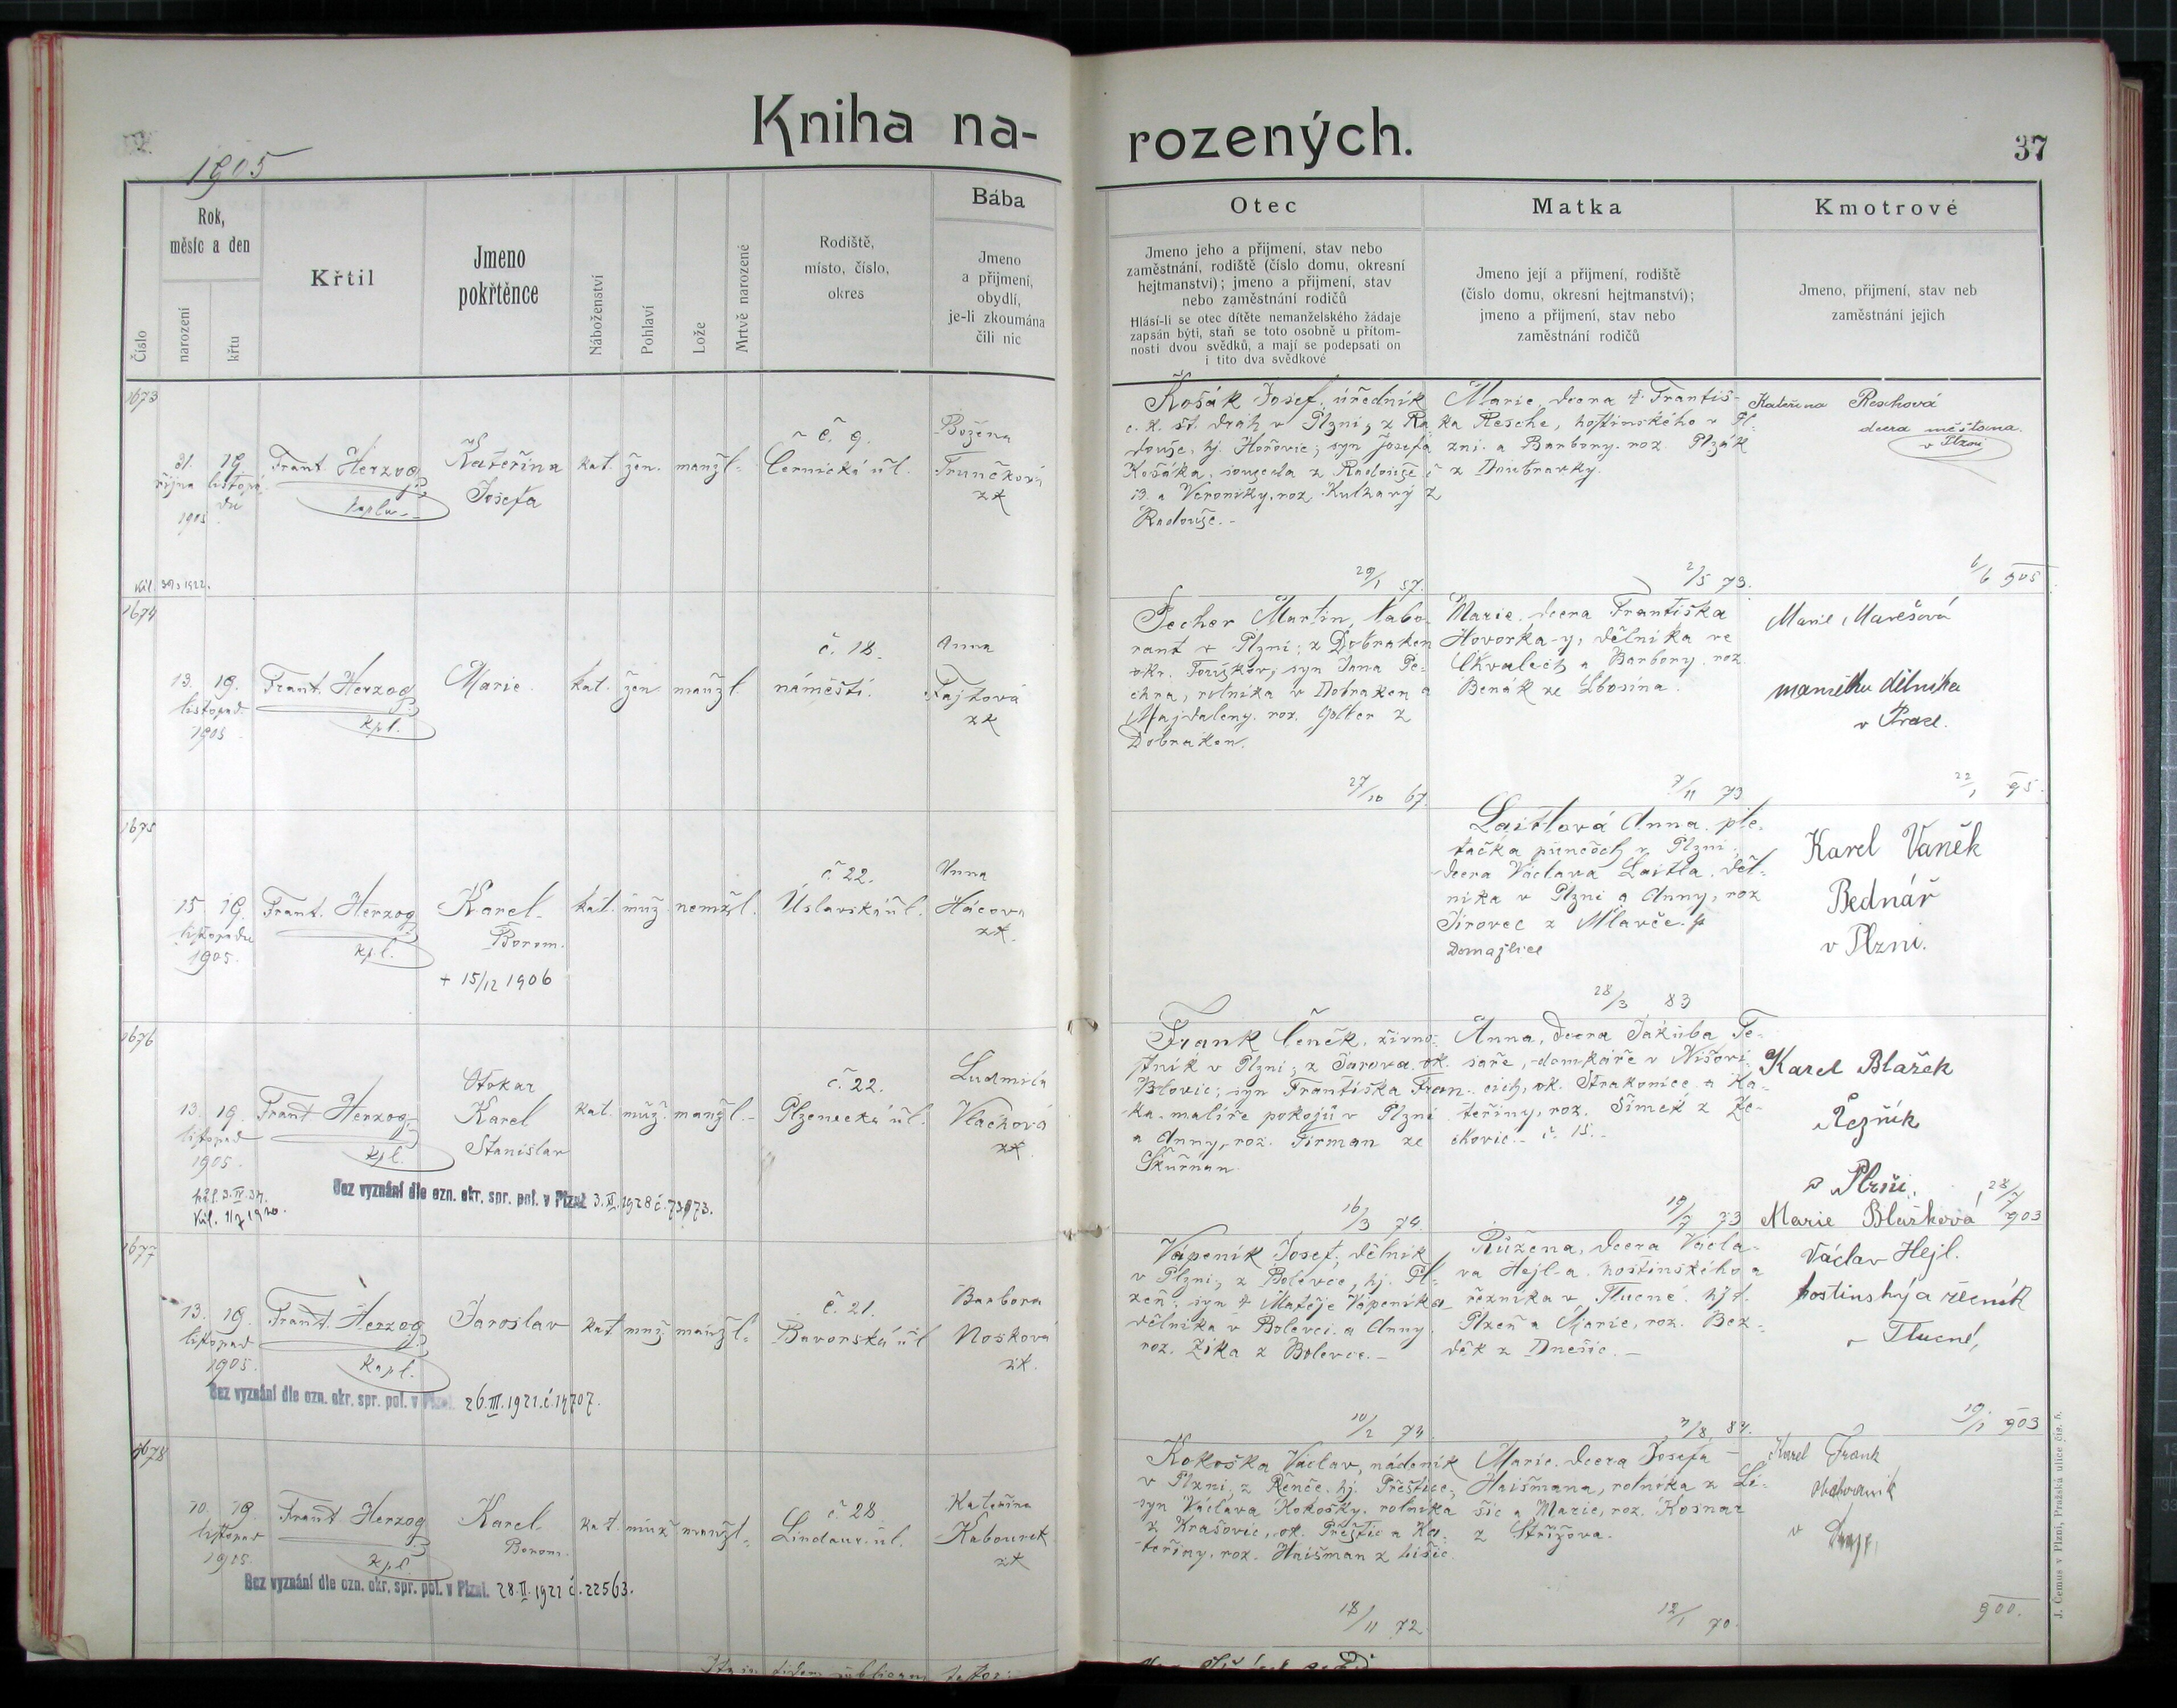 Kniha na-
rozených.
37
1905
Číslo
Rok,
měsíc a den
narození
křtu
Křtil
Jmeno
pokřtěnce
Náboženství
Pohlaví
Lože
Mrtvě narozené
Rodiště,
místo, číslo,
okres
Bába
Jmeno
a přijmení,
obydlí,
je-li zkoumána
čili nic
Otec
Jmeno jeho a přijmení, stav nebo
zaměstnání, rodiště (číslo domu, okresní
hejtmanství); jmeno a přijmení, stav
nebo zaměstnání rodičů
Hlásí-li se otec dítěte nemanželského žádaje
zapsán býti, staň se toto osobně u přítom-
nosti dvou svědků, a mají se podepsati on
i tito dva svědkové
Matka
Jmeno její a přijmení, rodiště
(číslo domu, okresní hejtmanství);
jmeno a přijmení, stav nebo
zaměstnání rodičů
Kmotrové
Jmeno, přijmení, stav neb
zaměstnání jejich
1673
31. 19.
října listopa
du
1905
Frant. Herzog
kaplan
Kateřina
Josefa
kat. žen. manžl.
č. 9.
Černická ul.
Božena
Trunčková
zk
Košák Josef, úředník
c. k. st. drah v Plzni, z Ra
douše, hj. Hořovic; syn Josefa
Košáka, souseda z Radouše č
13. a Veroniky, roz. Kulhavý z
Radouše.-
29/1 57.
Marie, dcera † Františ-
ka Resche, hostinského v Pl-
zni a Barbory, roz. Plzák
z Doubravky.
2/5 73.
Kateřina Reschová
dcera měšťana
v Plzni
6/6 905
1674
13. 19.
listopad
1905
Frant. Herzog
kpl.
Marie.
kat. žen manžl
č. 18.
náměstí.
Anna
Fajtová
zk
Pecher Martin, labo-
rant v Plzni; z Dobraken
okr. Touškov; syn Jana Pe-
chra, rolníka v Dobraken a
Majdaleny, roz. Golter z
Dobraken.
27/10 67
Marie, dcera Františka
Hovorka-y, dělníka ve
Chvalech a Barbory, roz.
Benák ze Lbosína.
7/11 73
Marie Marešová
manželka dělníka
v Praze.
22/1 95.
1675
15. 19.
listopadu
1905.
Frant. Herzog
kpl.
Karel
Borom.
+ 15/12 1906
kat. muž. nemžl.
č. 22.
Úslavská ul.
Anna
Hácova
zk.
Laitlová Anna, ple-
tačka punčoch v Plzni,
dcera Václava Laitla, děl-
níka v Plzni a Anny, roz
Jírovec z Mlavče.
Domažlice
28/3 83
Karel Vaněk
Bednář
v Plzni.
1676
13. 19.
listopad
1905.
Frant Herzog
kpl.
Otokar
Karel
Stanislav
kat. muž. manžl.-
č. 22.
Plzenecká ul.
Ludmila
Vlačková
zk
Bez vyznání dle ozn. okr. spr. pol. v Plzni 3.XI.1928 č. 73973.
Frank Čeněk, živno-
stník v Plzni; z Žarova ok.
Blovic; syn Františka Fran-
ka, malíře pokojů v Plzni
a Anny, roz. Firman ze
Škurňan.
16/3 74.
Anna, dcera Jakuba Te-
saře, domkáře v Nišovi-
cích, ok. Strakonice, a Ka-
teřiny, roz. Šimek z Ze-
chovic.- č. 15.-
19/7 73
Karel Blažek
Řezník
v Plzni,
Marie Blažková 28/7 903
1677
13. 19.
listopad
1905.
Frant. Herzog
kapl.
Jaroslav
kat muž manžl.
č. 21.
Bavorská ul
Barbora
Nosková
zk.
Bez vyznání dle ozn. okr. spr. pol. v Plzni. 26.III.1921.č.14707.
Vápeník Josef, dělník
v Plzni, z Bolevce, hj. Pl-
zeň; syn † Matěje Vápeníka
dělníka v Bolevci a Anny,
roz. Žika z Bolevce.-
10/2 74
Růžena, dcera Václa-
va Hejl-a, hostinského a
řezníka v Tlucné, hjt.
Plzeň a Marie, roz. Bez-
děk z Dnešic.-
7/8 84.
Václav Hejl.
hostinský a řezník
v Tlucné,
19/1 903
1678
10. 19.
listopad
1905.
Frant Herzog
kpl.
Karel
Borom.
kat. muž manžl.
č. 28
Lindaur. ul.
Kateřina
Kabourek
zk
Bez vyznání dle ozn. okr. spr. pol. v Plzni. 28.II.1921 č.22563.
Kokoška Václav, nádeník
v Plzni, z Řenče, hj. Přeštice;
syn Václava Kokošky, rolníka
z Krašovic, ok. Přeštic a Ka-
teřiny, roz. Haišman z Lišic
18/11 72
Marie, dcera Josefa
Haišmana, rolníka z Li-
šic a Marie, roz. Kosnar
z Střížova.
12/1 70.
Karel Frank
obchodník
v
900.
J. Čemus v Plzni, Pražská ulice čís. 5.